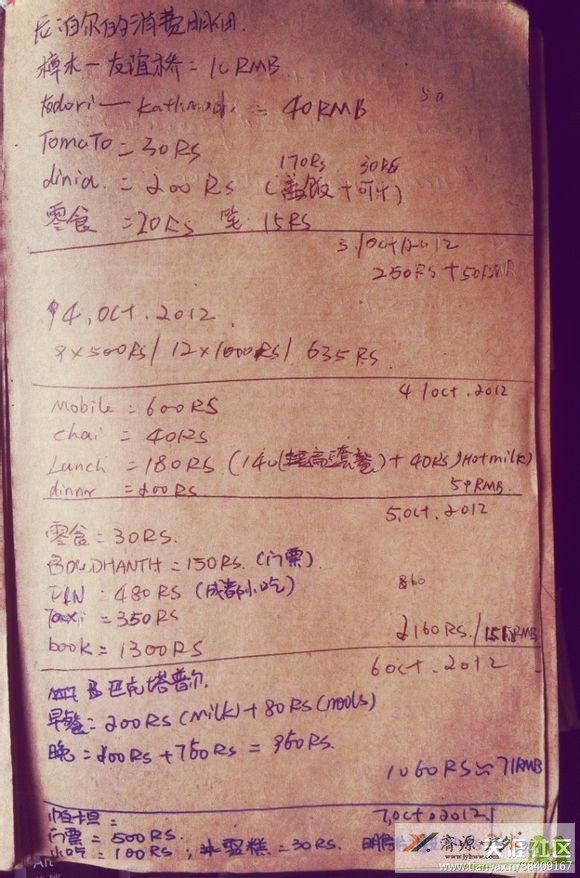 尼泊尔的消费明细.
樟木一友谊桥 = 10RMB
Kodori — Kathmandu = 40RMB
Tomato = 30RS
170RS 30RS
= 200 RS (套饭 + 可乐)
零食 = 20RS 笔 15RS
3./Oct/2012
250RS + 50RMB
4, Oct. 2012
9×500RS/ 12×1000RS/ 635RS
4/Oct. 2012
Mobile = 600RS
chai = 40RS
Lunch = 180RS (140 + 40RS)Hotmilk)
dinner = 200RS.
59RMB.
5,oct. 2012
零食 = 30RS.
BOUDHANTH = 150RS. (门票)
480RS (成都小吃)
860
Taxi = 350RS
2160RS./155RMB
book = 1300RS
6 oct. 2012
巴克塔普尔.
早餐 = 200RS (Milk) + 80RS (mools)
晚 = 200RS + 760RS = 960RS.
1060RS ≈ 71RMB
帕坦 =
7,Oct.2012.
门票 = 500RS.
小吃 = 100RS ; 冰雪糕 = 30RS.
齐源
www.jyhww.com
天涯社区
www.tianya.cn/88409167